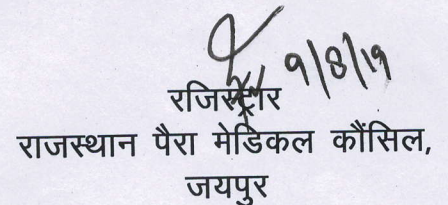 9/8/19
रजिस्ट्रार
राजस्थान पैरा मेडिकल कौंसिल,
जयपुर